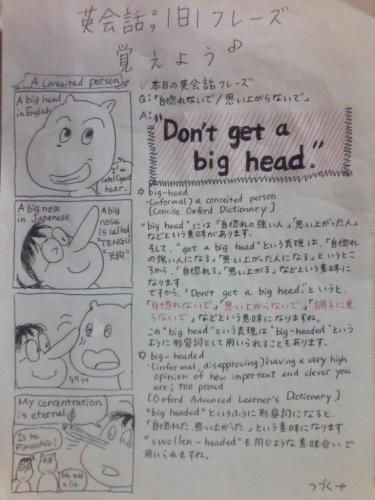 英会話。1日1フレーズ
覚えよう
A conceited person
A big head
in English
I'm
intelligent
bear.
A big nose
in Japanese
A big
nose
is called
"TENGU"
"天狗"
My concentration
is eternal
Is he
Pinocchio?
He told
a lie.
✓本日の英会話フレーズ
Q:「自惚れないで/思い上がらないで」
A:
"Don't get a
big head."
big-head
・(informal) a conceited person
[Concise Oxford Dictionary]
"big head"には「自惚れの強い人」「思い上がった人」
などという意味があります。
そして、"get a big head"という表現は、「自惚れ
の強い人になる」「思い上がった人になる」というとこ
ろから、「自惚れる」「思い上がる」などという意味に
なります。
ですから、"Don't get a big head."というと、
「自惚れないで」「思い上がらないで」「調子に乗
らないで」などという意味になりますね。
この"big head"という表現は"big-headed"という
ように形容詞として用いられることもあります。
big-headed
・(informal, disapproving) having a very high
opinion of how important and clever you
are; too proud
[Oxford Advanced Learner's Dictionary]
"big headed"というふうに形容詞になると、
「自惚れた、思い上がった」という意味になります。
"swollen-headed"も同じような意味合いで
用いられますね。
つづく→